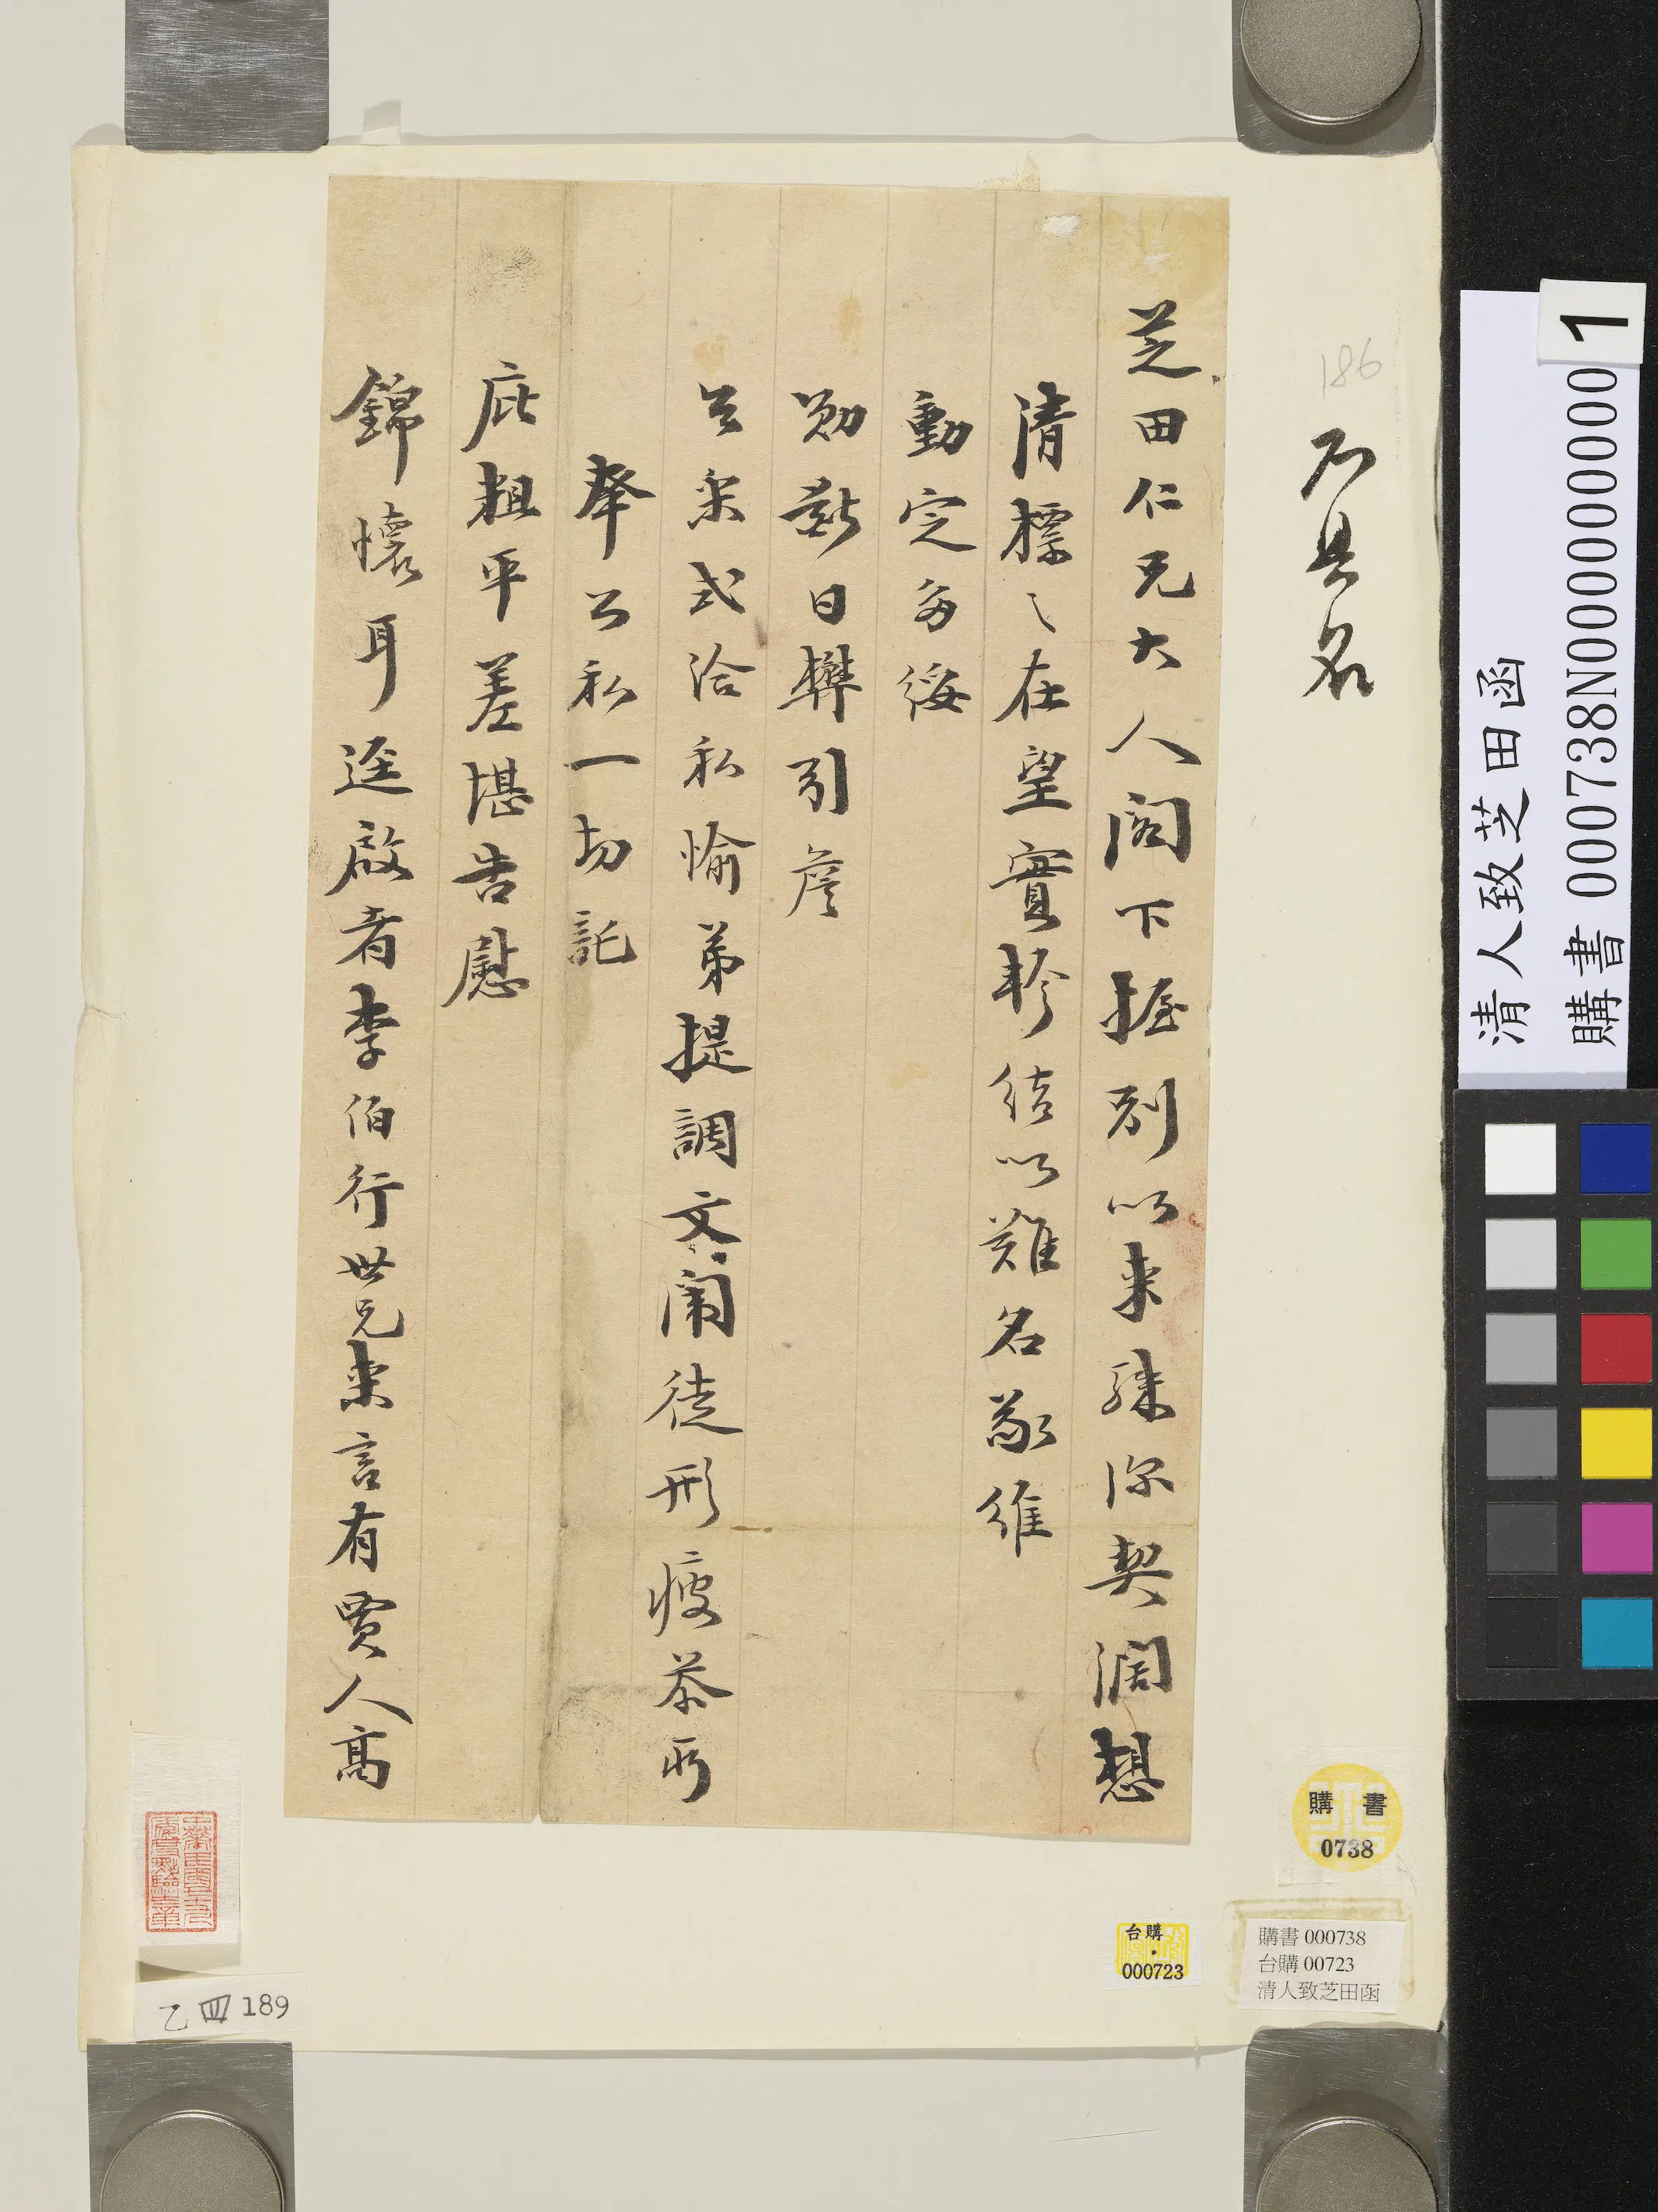 186
不具名
芝田仁兄大人閣下握別以來殊深契闊想
清標々在望實軫結以難名敬維
動定多綏
勛猷日懋引詹
吉采式洽私愉弟提調文闈徒形疲苶所
奉公私一切託
庇粗平差堪告慰
錦懷耳逕啟者李伯行世兄來言有賈人高
清人致芝田函
購書 000738N000000000
1
購書
0738
台購
000723
購書 000738
台購 00723
清人致芝田函
乙四189